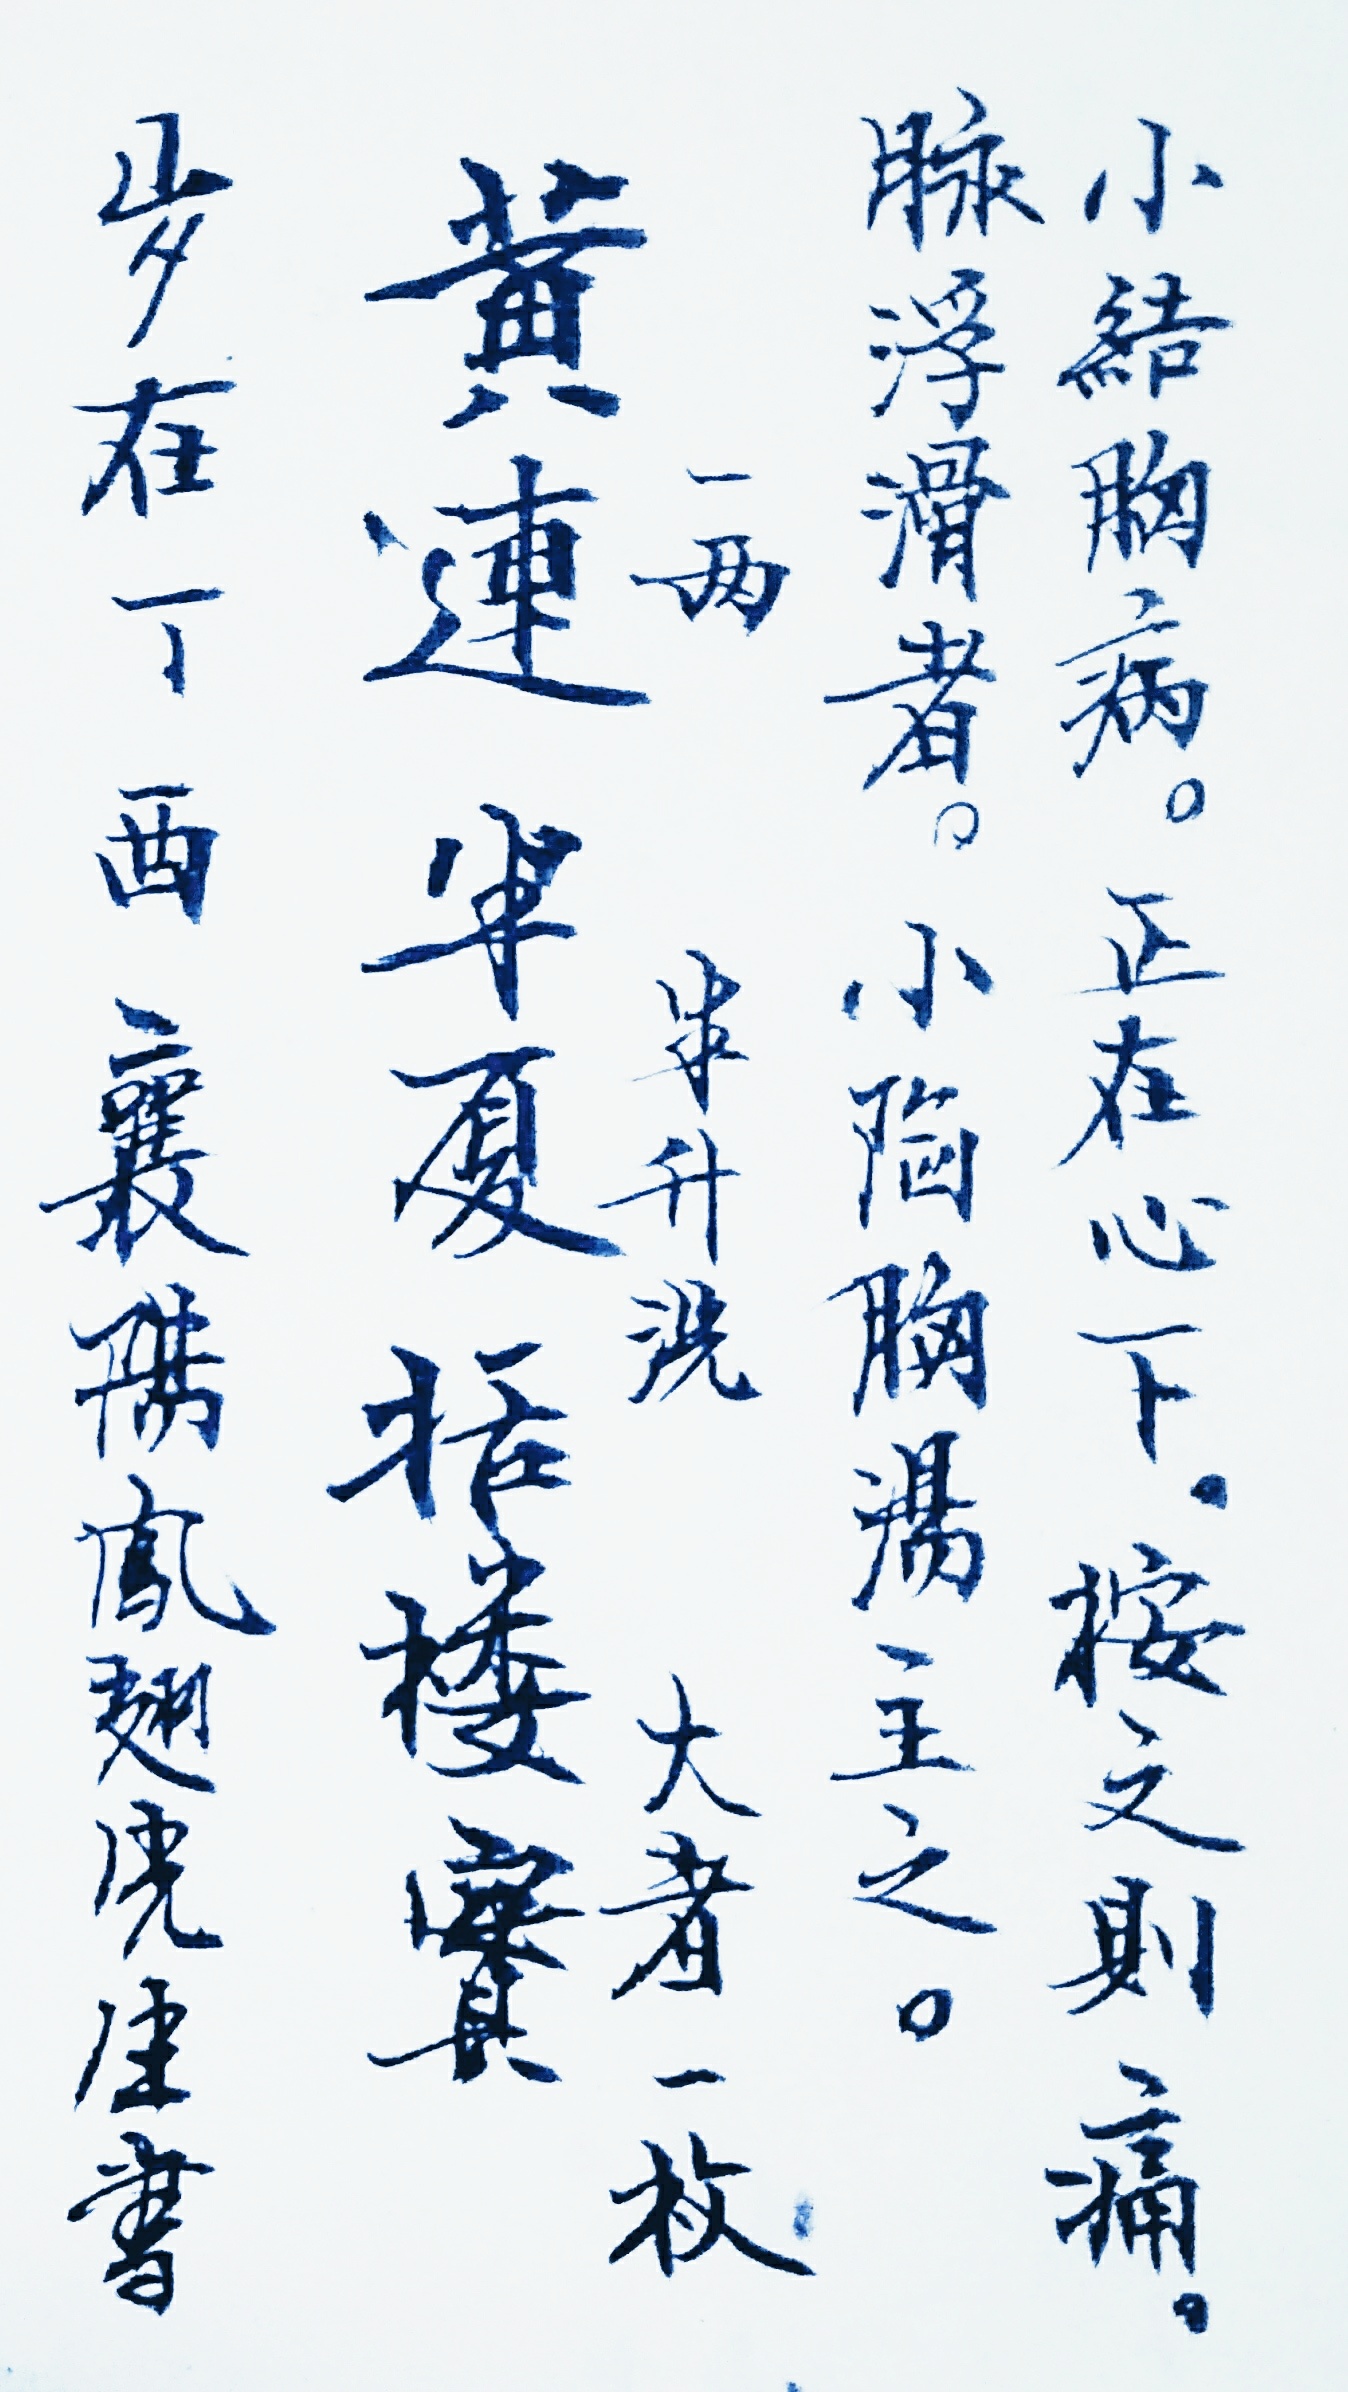 小結胸病。正在心下。按之則痛。
脉浮滑者。小陷胸湯主之。
一两 半升洗 大者一枚
黄連 半夏 括楼實
岁在丁酉襄陽鳳翅虎生書